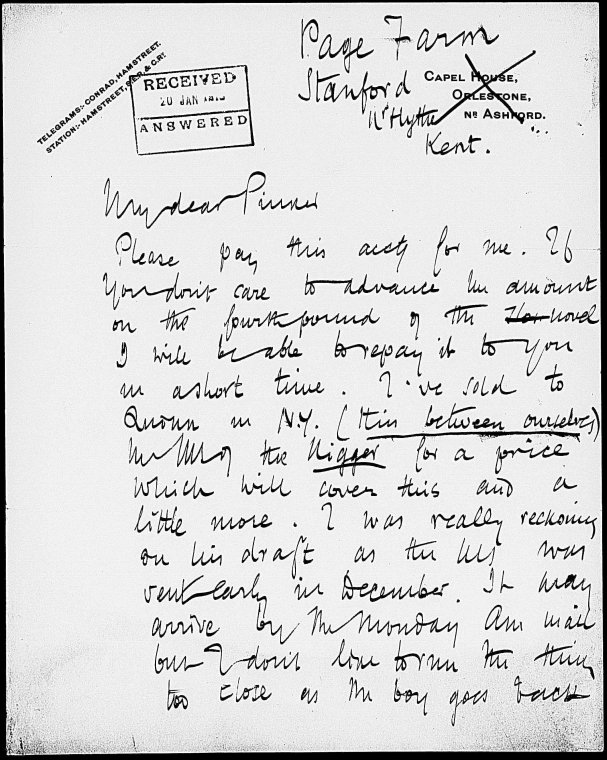 TELEGRAMS:- CONRAD, HAMSTREET.
STATION:- HAMSTREET, S.E. & C.RY.
RECEIVED
20 JAN 1913
ANSWERED
Page Farm
Stanford
Nr Hythe
Kent.
CAPEL HOUSE,
ORLESTONE,
NR ASHFORD.
My dear Pinker
Please pay this accts for me. If
You don't care to advance the amount
on the fourth pound of the novel
I will be able to repay it to You
in a short time. I've sold to
Quinn in N.Y. (this between ourselves)
the MS of the Nigger for a price
which will cover this and a
little more. I was really reckoning
on his draft as the MS was
sent early in December. It may
arrive by the Monday Am mail
but I don't like to run the thing
too close as the boy goes back